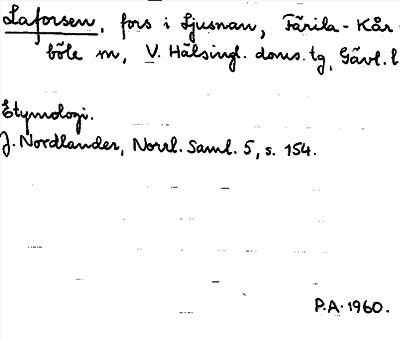 Laforsen, fors i Ljusnan, Färila-Kår-
böle sn, V. Hälsingl. doms. tg, Gävl. l
Etymologi.
J. Nordlander, Norrl. Saml. 5, s. 154.
P.A. 1960.